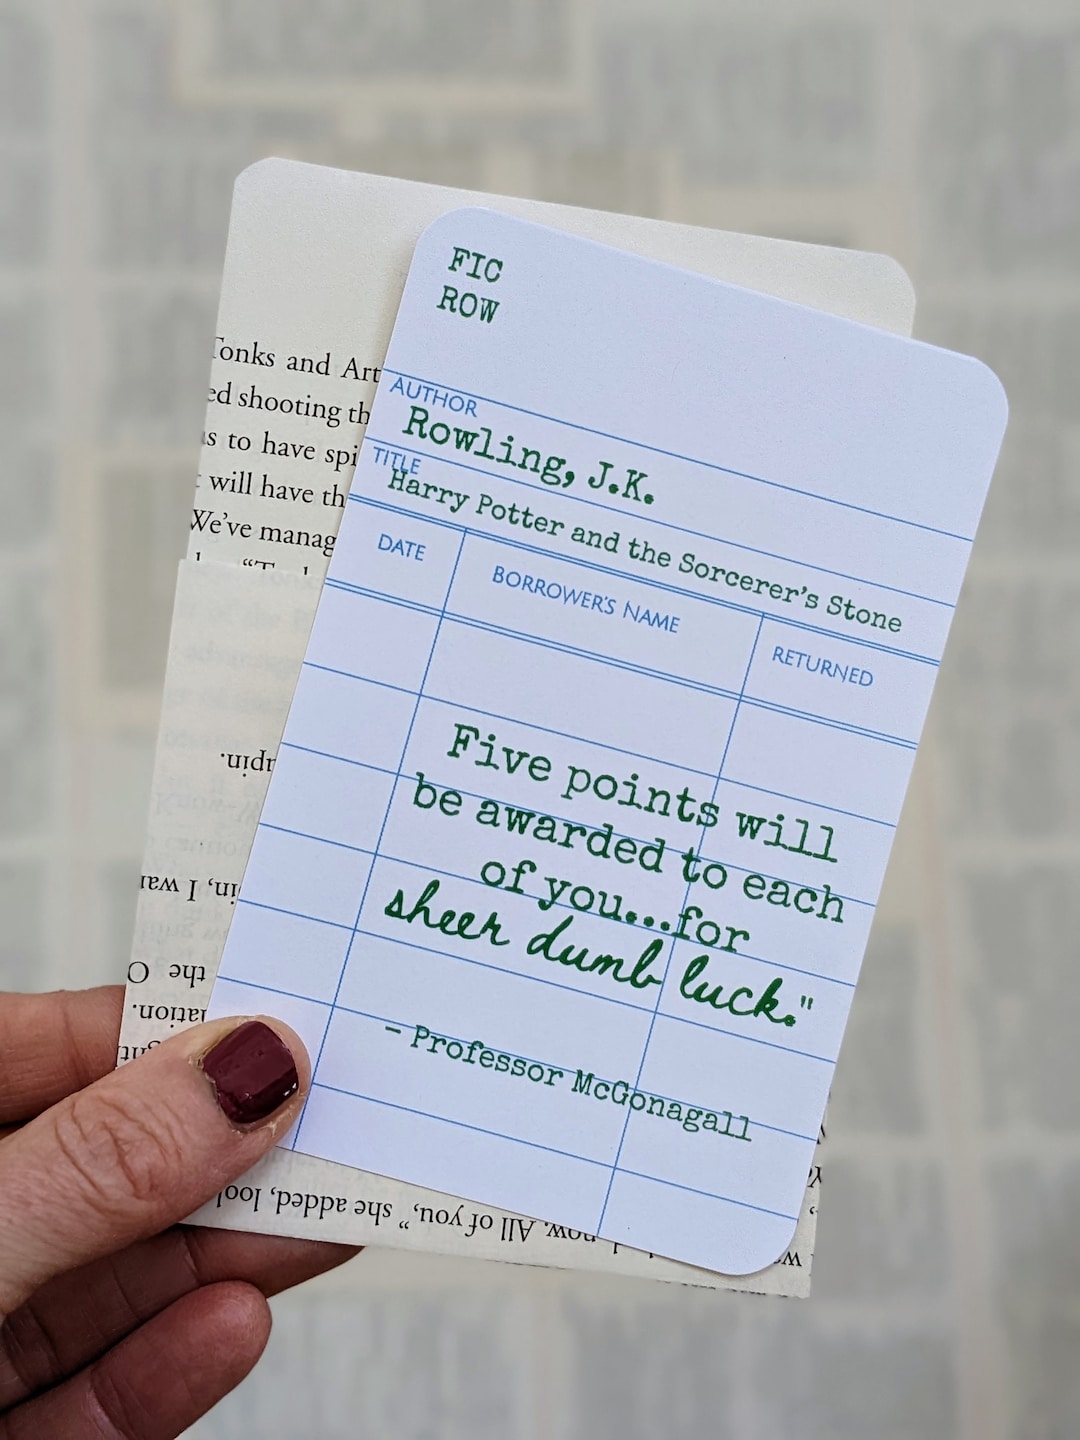 FIC
ROW
AUTHOR
Rowling, J.K.
TITLE
Harry Potter and the Sorcerer's Stone
DATE BORROWER'S NAME RETURNED
Five points will
be awarded to each
of you...for
sheer dumb luck."
- Professor McGonagall
Tonks and Art
ed shooting th
s to have spi
will have th
We've manag
upin.
in, I wan
the O
nation.
now. All of you," she added, look